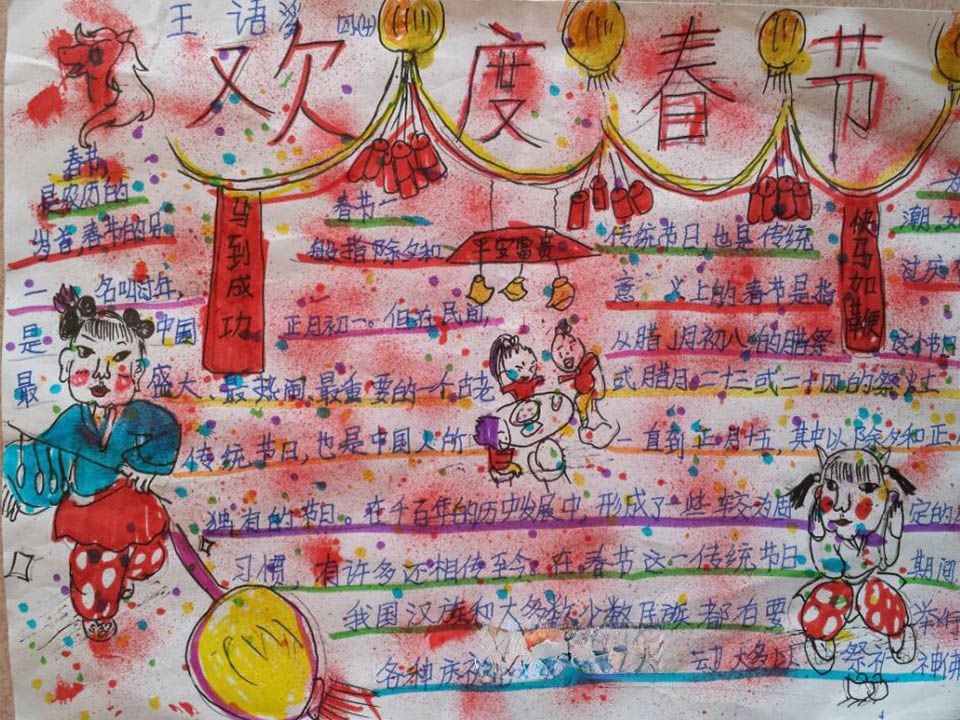 王语溪
欢度春节
春节,
是农历的
岁首,春节的另
一名叫过年,
是中国
最盛大、最热闹、最重要的一个古老
传统节日,也是中国人的
独有的节日。在千百年的历中发展中,形成了一些较为固定的
习惯,有许多还相传至今。在春节这一传统节日期间
我国汉族和大多数少数民族都有要举行
各种庆祝
动大多以祭祀神佛
春节一
般指除夕和
正月初一。但在民间,
传统节日,也是传统
意义上的春节是指
从腊月初八的腊祭
或腊月二十三或二十四的祭土
一直到正月十五,其中以除夕和正
潮
过庆
这个节日
马到成功
平安富贵
快马加鞭